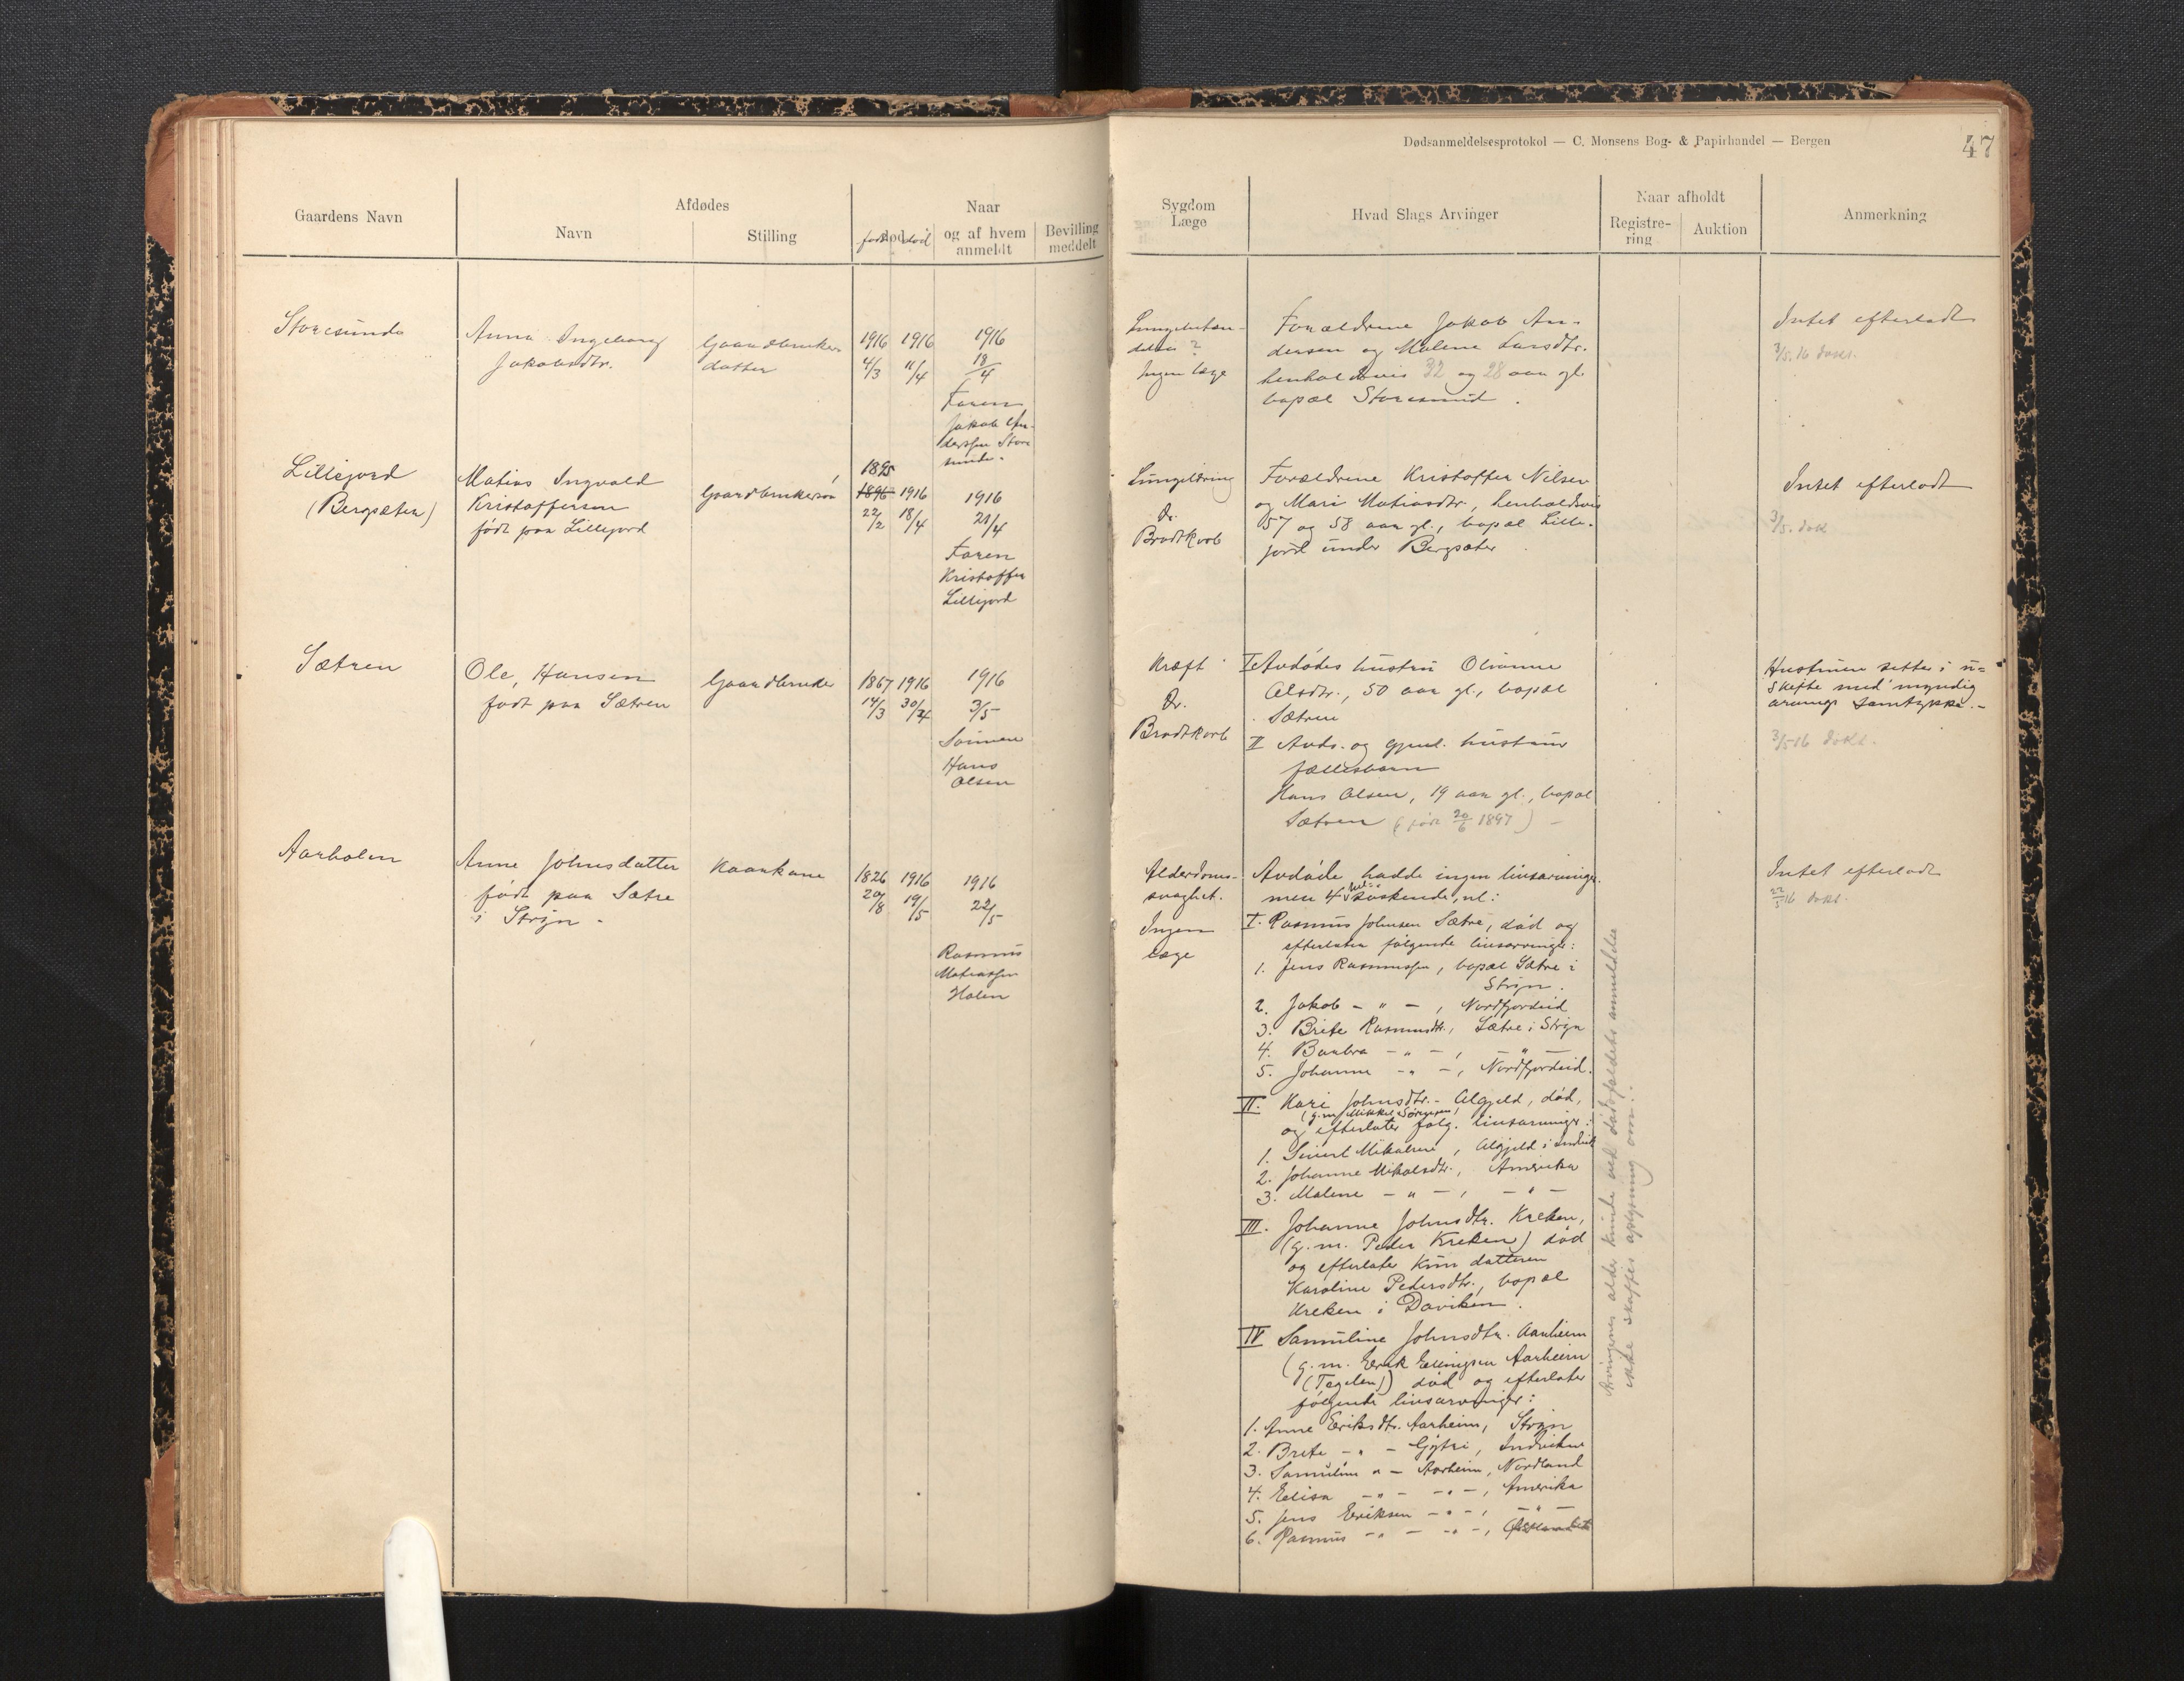 Dødsanmeldelsesprotokol — C. Monsens Bog- & Papirhandel — Bergen
47
Gaardens Navn
Afdødes
Navn
Stilling
Naar
født død
og af hvem
anmeldt
Bevilling
meddelt
Sygdom
Læge
Hvad Slags Arvinger
Naar afholdt
Registre-
ring
Auktion
Anmerkning
Storesunde
Anna Ingeborg
Jakobsdtr.
Gaardbruker-
datter
1916 1916
4/3 11/4
1916
18/4
Faren
Jakob An-
dersen Store
sunde.
Ingen læge
Forældrene Jakob An-
dersen og Malene Larsdtr.
henholdsvis 32 og 28 aar gl.
bopæl Storesund.
Intet efterladt
3/5.16 dokt.
Lillejord
(Bergsæter)
Matias Ingvald
Kristoffersen
født paa Lillejord
Gaardbrukersøn
1895
1896 1916
22/2 18/4
1916
21/4
Faren
Kristoffer
Lillejord
Lungebetændelse
Dr.
Brodtkorb
Forældrene Kristoffer Nilsen
og Mari Matiasdtr., henholdsvis
57 og 58 aar gl., bopæl Lille-
jord under Bergsæter
Intet efterladt
3/5. dokt
Sætren
Ole Hansen
født paa Sætren
Gaardbruker
1867 1916
14/3 30/4
1916
3/5
Sønnen
Hans
Olsen
Kræft
Dr.
Brodtkorb
I Avdødes hustru Olianne
Olsdtr., 50 aar gl., bopæl
Sætren
II Avds. og gjenl. hustrus
fællesbarn
Hans Olsen, 19 aar gl., bopæl
Sætren (født 20/6 1897) -
Hustruen sitter i u-
skifte med myndig
arvings samtykke.-
3/5 16 dokt.
Aarholen
Anne Johnsdatter
født paa Sætre
i Stryn -
Kaarkone
1826 1916
20/8 19/5
1916
22/5
Rasmus
Matiassen
Holen
Alderdoms-
svaghet.
Ingen
læge
Avdøde hadde ingen livsarvinger.
men 4 hel- søskende, nl:
I. Rasmus Johnsen Sætre, død og
efterlater følgende livsarvinger:
1. Jens Rasmussen, bopæl Sætre i
Stryn.
2. Jakob - " - , Nordfjordeid
3. Brite Rasmusdtr., Sætre i Stryn
4. Barbra - " - , - " -
5. Johanne - " - , Nordfjordeid.
II. Kari Johnsdtr. Algjeld, død,
(g.m. Mikkel Sørensen)
og efterlater følg. livsarvinger:
1. Sivert Mikalsen, Algjeld i Indvik
2. Johanne Mikalsdtr., Amerika
3. Malene - " - , - " -
III. Johanne Johnsdtr. Kreken,
(g.m. Peder Kreken) død
og efterlater kun datteren
Karoline Pedersdtr., bopæl
Kreken i Daviken.
IV Samuline Johnsdtr. Aarheim
(g.m. Erik Ellingsen Aarheim
død og efterlater
følgende livsarvinger:
1. Anne Eriksdtr. Aarheim, Stryn
2. Brite - " - Gytri, Indviken
3. Samuline " - Aarheim, Nordland
4. Elisa - " - - " -, Amerika
5. Jens Eriksen - " -, - " -
6. Rasmus - " - - " -,
Arvingernes alder kunde ved dødsfaldets anmeldelse
ikke skaffes oplysning om.
Intet efterladt
22/5 16 dokt.